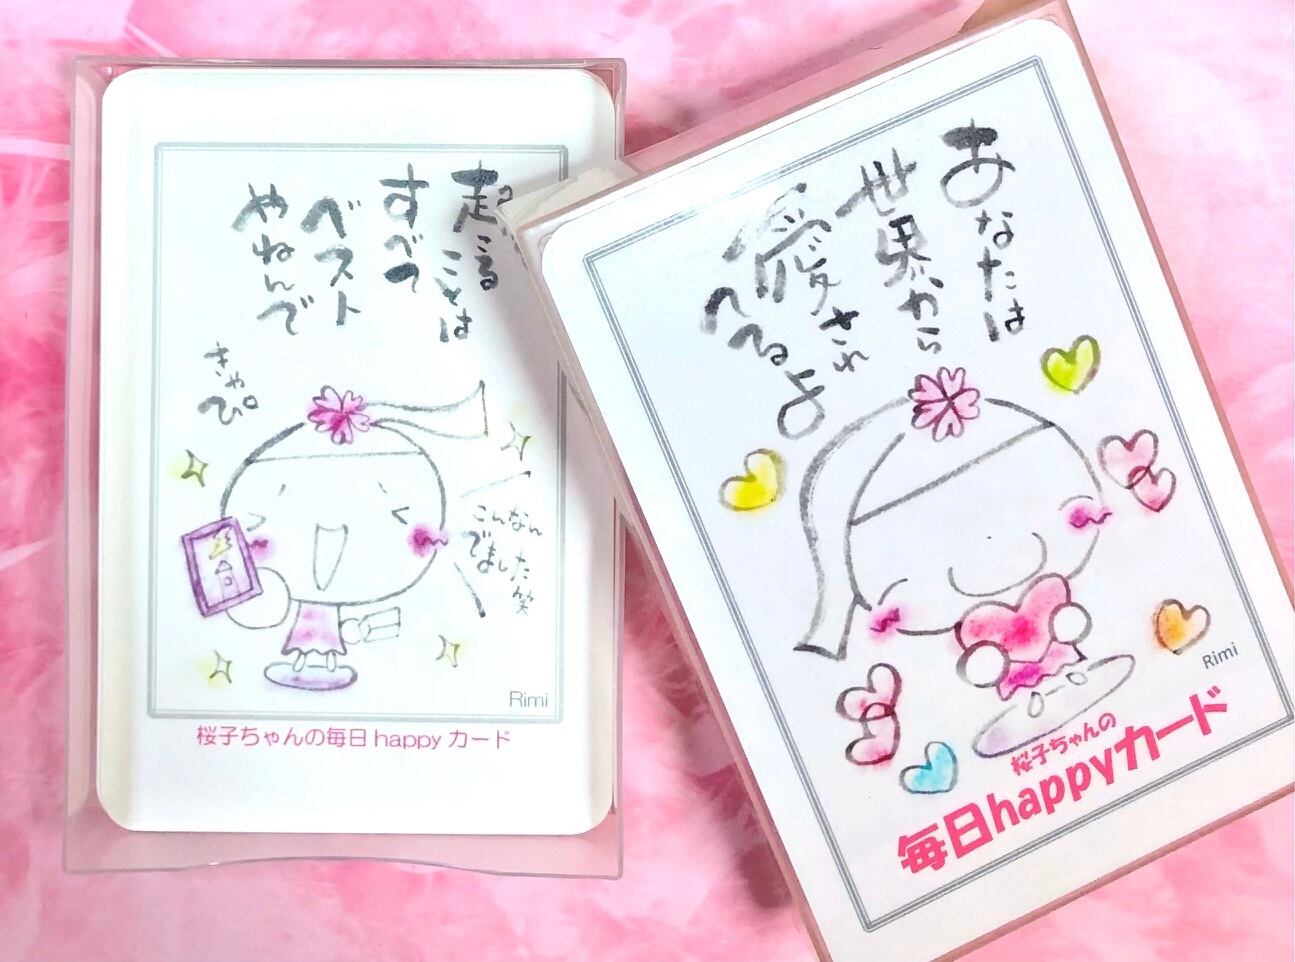 起こることは
すべて
ベスト
やねんで
きゃぴ。
こんなん
でました笑
Rimi
桜子ちゃんの毎日happyカード
あなたは
世界から
愛され
てるよ
Rimi
桜子ちゃんの
毎日happyカード